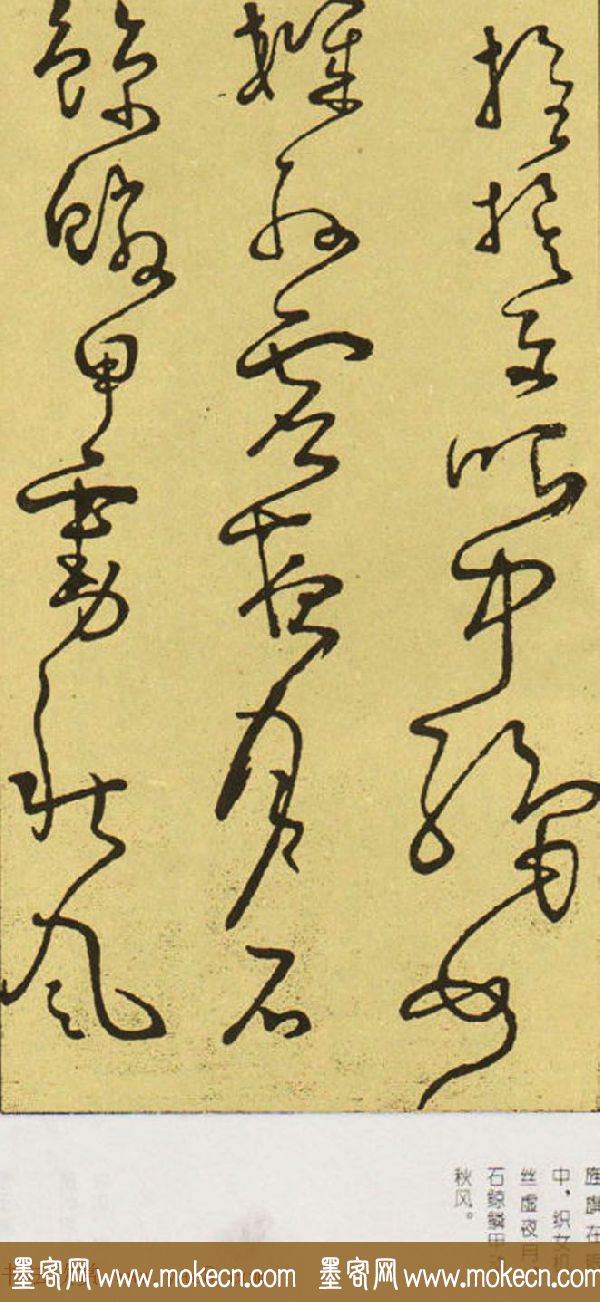 旌旗在眼中織女
機絲虛夜月石
鯨鱗甲動秋風
旌旗在眼
中，织女机
丝虚夜月
石鲸鳞甲
秋风。
墨客网 www.mokecn.com 墨客网 www.mokecn.com